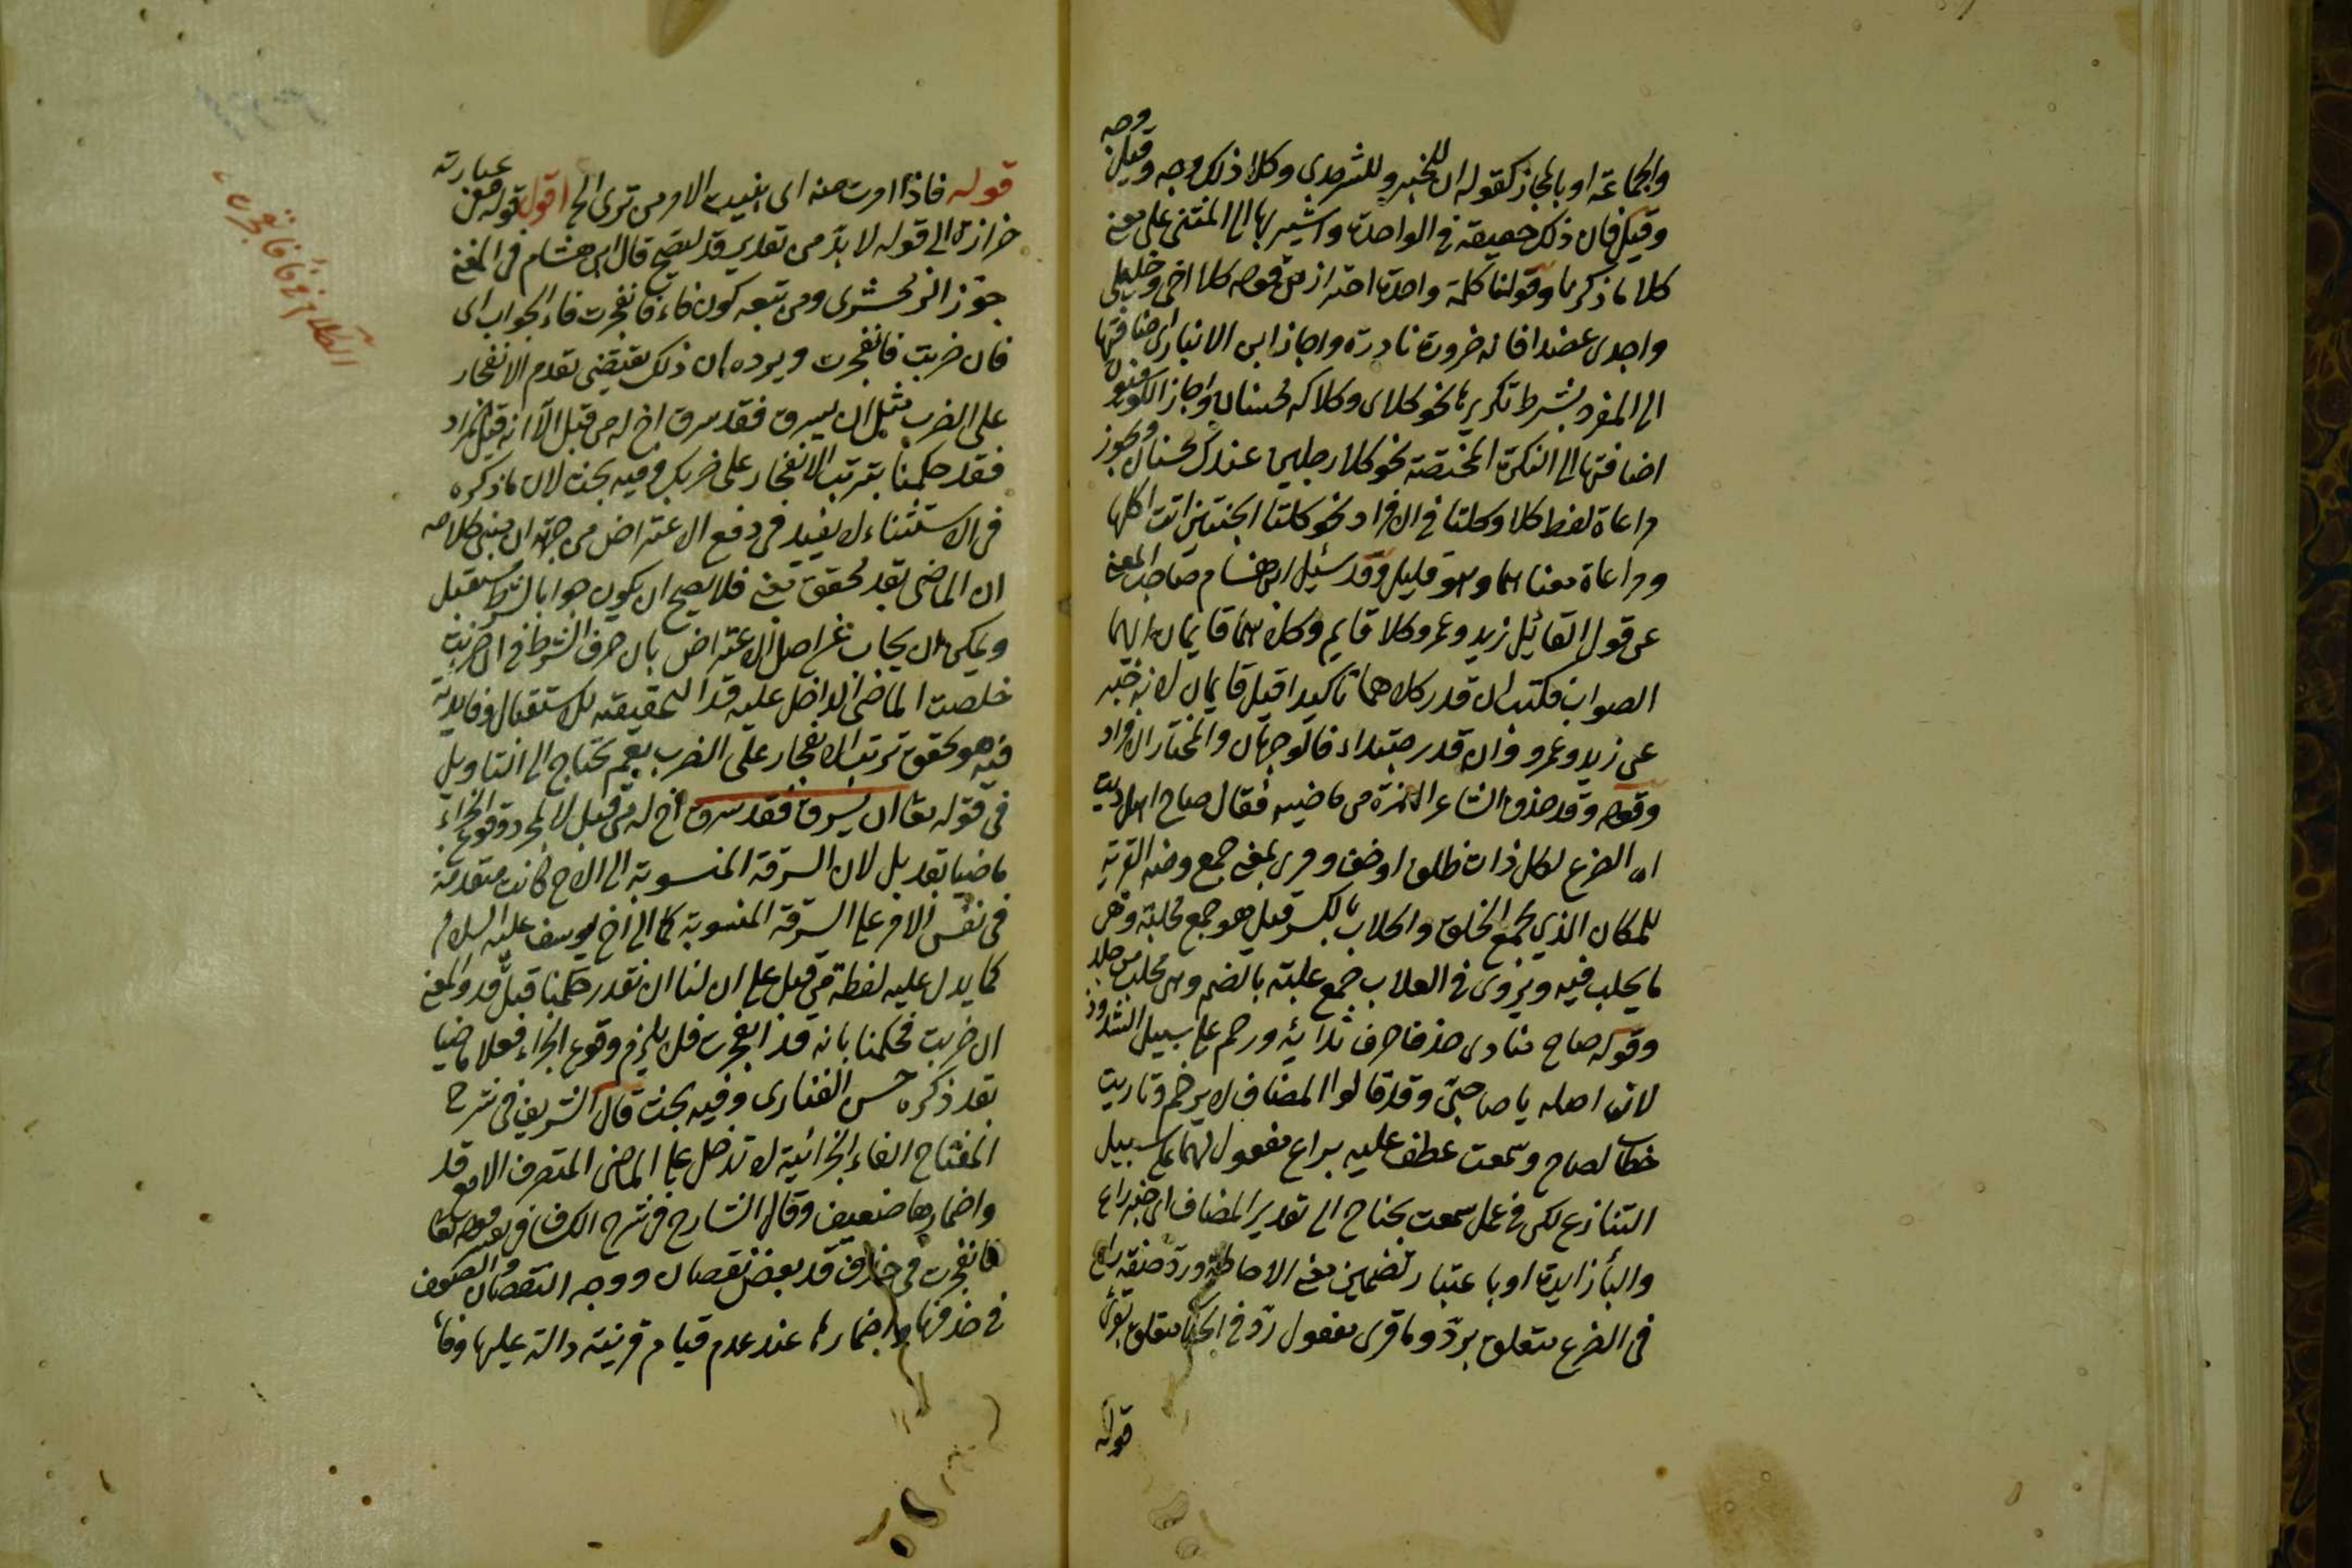 والجماعة او بالمجاز كقوله ان للخير وللشر مدى وكلا ذلك وجه وقبل
وقيل فان ذلك حقيقة في الواحد واشير بها الى المثنى على معنى
كلا ما ذكرنا وقولنا كلمة واحدة احتراز من قوله كلا اخي وخليلي
واجدي عضدا فانه ضرورة نادرة واجاز ابن الانباري اضافتها
الى المفرد بشرط تكريرها نحو كلاي وكلاك محسنان واجاز الكوفيون
اضافتها الى النكرة المختصة نحو كلا رجلين عندك محسنان ويجوز
مراعاة لفظ كلا وكلتا في الافراد نحو كلتا الجنتين اتت اكلها
ومراعاة معناهما وهو قليل وقد سئل ابن هشام صاحب المغني
عن قول القائل زيد وعمرو كلاهما قايم وكلاهما قايمان ايهما
الصواب فكتب ان قدر كلاهما تاكيدا قيل قايمان لانه خبر
عن زيد وعمرو وان قدر مبتداء فالوجهان والمختار الافراد
وقوله وقد حذف الشاعر الهمزة من ماضيه فقال صاح هل ريت
اه الضرع لكل ذات ظلف او خف وقرى بمعنى جمع ومنه القرية
للمكان الذي يجمع الخلق والحلاب بالكسر قيل هو جمع محلبة وهي
ما يحلب فيه ويروى في العلاب جمع علبة بالضم وهي محلب من جلد
وقوله صاح منادى حذف حرف ندائه ورخم على سبيل الشذوذ
لان اصله يا صاحبي وقد قالوا المضاف لا يرخم وتاريت
خطاب لصاح وسمعت عطف عليه براع مفعول لهما على سبيل
التنازع لكن في عمل سمعت يحتاج الى تقدير المضاف اي خبر راع
والبأ زايدة او باعتبار تضمين معنى الاحاطة ورد صفة راع
في الضرع متعلق برد وما قرى مفعول رد في الحلاب متعلق بقرى
قوله
قوله فاذا امرت منه اي بنيت الامر من ترى الخ اقول قوله من عبارته
جوز الزمخشري ومن تبعه كون فاء فانفجرت فاء الجواب اي
فان ضربت فانفجرت ويرده ان ذلك يقتضي تقدم الانفجار
على الضرب مثل ان يسرق فقد سرق اخ له من قبل الا انه قيل المراد
فقد حكمنا بترتب الانفجار على ضربك وفيه بحث لان ما ذكره
في الاستثناء لا يفيد في دفع الاعتراض من جهة ان مبنى كلامه
ان الماضي بقد محقق معنى فلا يصح ان يكون جوابا لشرط مستقبل
ويمكن ان يجاب عن اصل الاعتراض بان حرف الشرط في ان ضربت
خلصت الماضي الداخل عليه قد التحقيقية للاستقبال وفايدته
فيه هو تحقق ترتب الانفجار على الضرب نعم يحتاج الى التاويل
في قوله تعا ان يسرق فقد سرق اخ له من قبل لا لمجرد وقوع الجزاء
ماضيا بقد بل لان السرقة المنسوبة الى الاخ كانت متقدمة
في نفس الامر على السرقة المنسوبة الى اخ يوسف عليه السلام
كما يدل عليه لفظة من قبل على ان لنا ان نقدر حكمنا قبل قد والمعنى
ان ضربت فحكمنا بانه قد انفجرت فلا يلزم وقوع الجزاء فعلا ماضيا
بقد ذكره حسن الفناري وفيه بحث قال الشريف في شرح
المفتاح الفاء الجزائية لا تدخل على الماضي المتصرف الا مع قد
واضمارها ضعيف وقال الشارح في شرح الكشاف
فانفجرت في حذف قد بعض نقصان ووجه النقصان
في حذفها واضمارها عند عدم قيام قرينة دالة عليها
الكلام في فاء فانفجرت